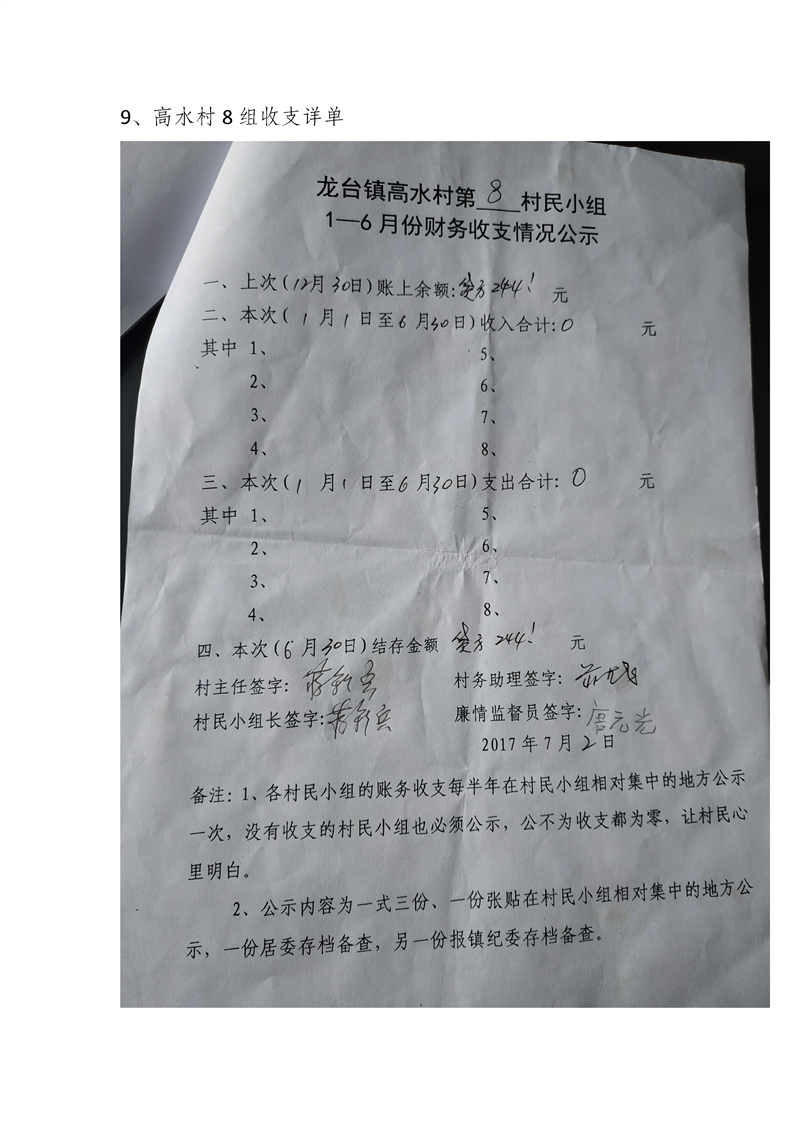 9、高水村 8 组收支详单
龙台镇高水村第 8 村民小组
1—6 月份财务收支情况公示
一、上次(12月30日)账上余额: 方 244! 元
二、本次( 1 月 1 日至 6 月30日)收入合计: 0 元
其中 1、 5、
2、 6、
3、 7、
4、 8、
三、本次( 1 月 1 日至 6 月30日)支出合计: 0 元
其中 1、 5、
2、 6、
3、 7、
4、 8、
四、本次( 6 月30日)结存金额 方 244! 元
村主任签字: 村务助理签字:
村民小组长签字: 廉情监督员签字: 唐元光
2017 年 7 月 2 日
备注: 1、各村民小组的账务收支每半年在村民小组相对集中的地方公示
一次，没有收支的村民小组也必须公示，公不为收支都为零，让村民心
里明白。
2、公示内容为一式三份、一份张贴在村民小组相对集中的地方公
示，一份居委存档备查，另一份报镇纪委存档备查。